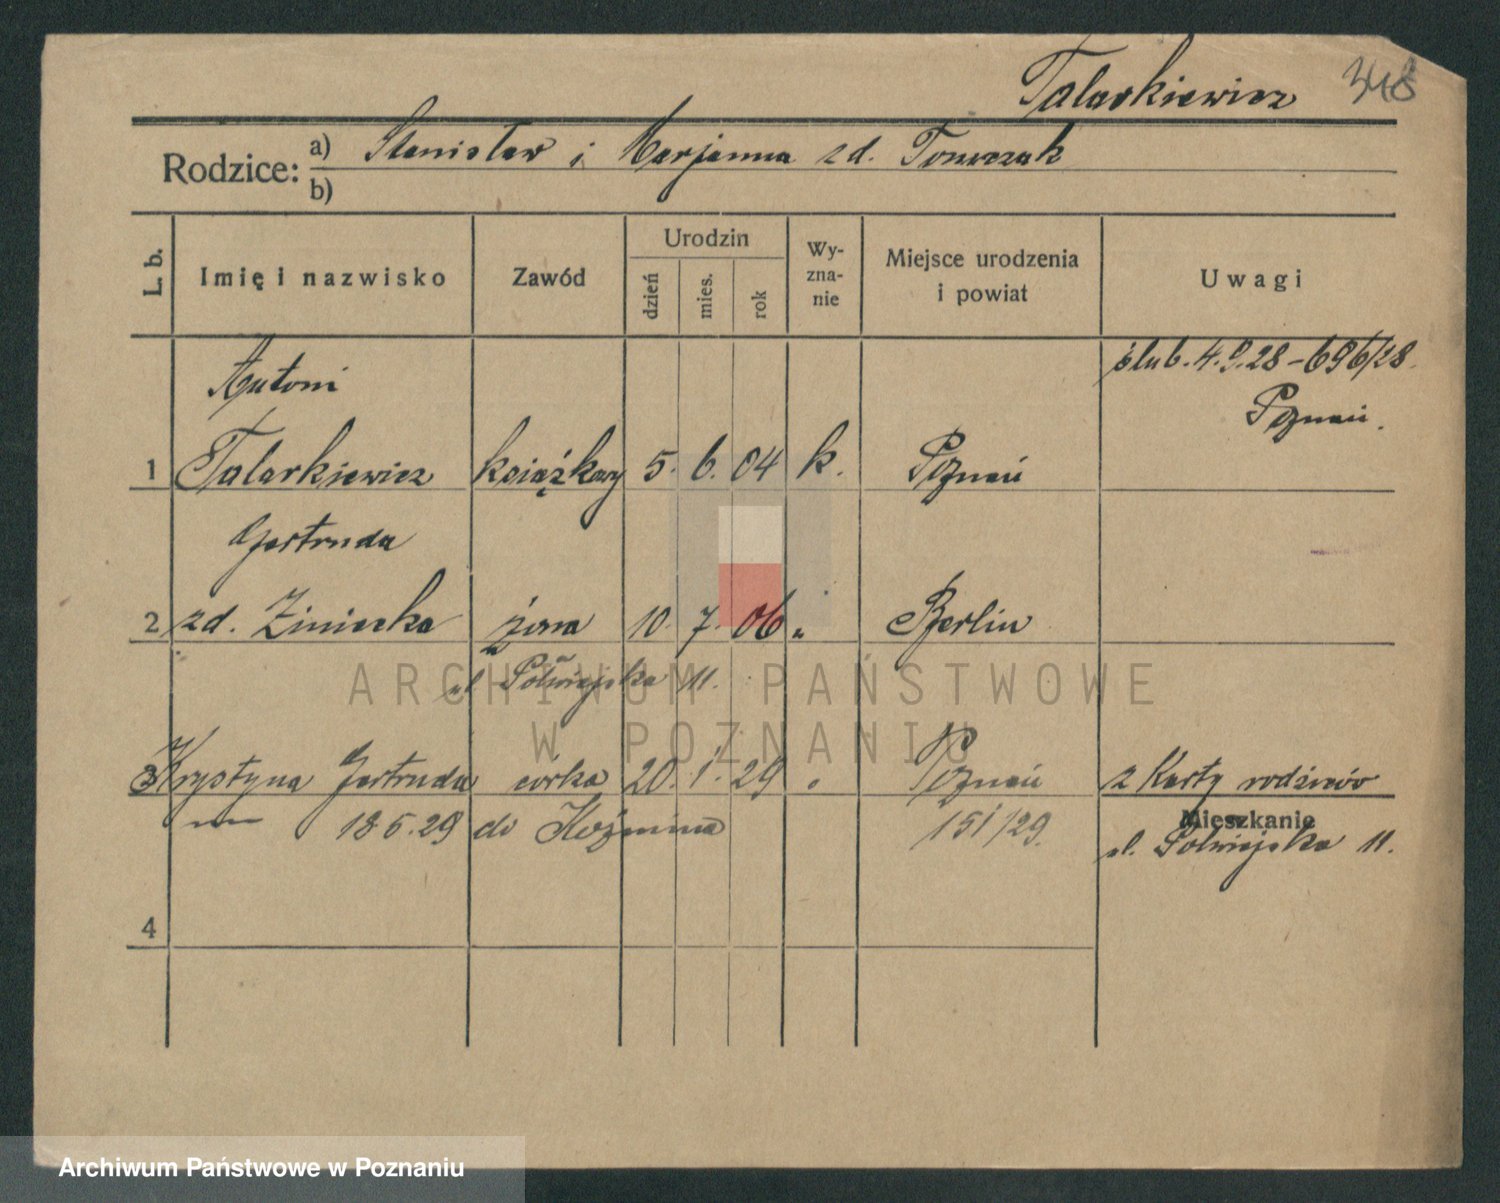 Talarkiewicz 348
Rodzice: a) Stanisław i Marjanna zd. Tomczak
b)
L. b. Imię i nazwisko Zawód Urodzin dzień mies. rok Wy-zna-nie Miejsce urodzenia i powiat Uwagi
ślub. 4.9.28 – 696/28
Antoni Poznań.
1 Talarkiewicz książkowy 5. 6. 04 k. Poznań
Gertruda
2 zd. Ziniecka żona 10. 7. 06 " Berlin
ul. Półwiejska 11.
ARCHIWUM PAŃSTWOWE
W POZNANIU
3 Krystyna Gertruda córka 20. 1. 29 " Poznań z Karty rodziców
18.5.29 do Koźmina 151/29. Mieszkanie
ul. Półwiejska 11.
4
Archiwum Państwowe w Poznaniu